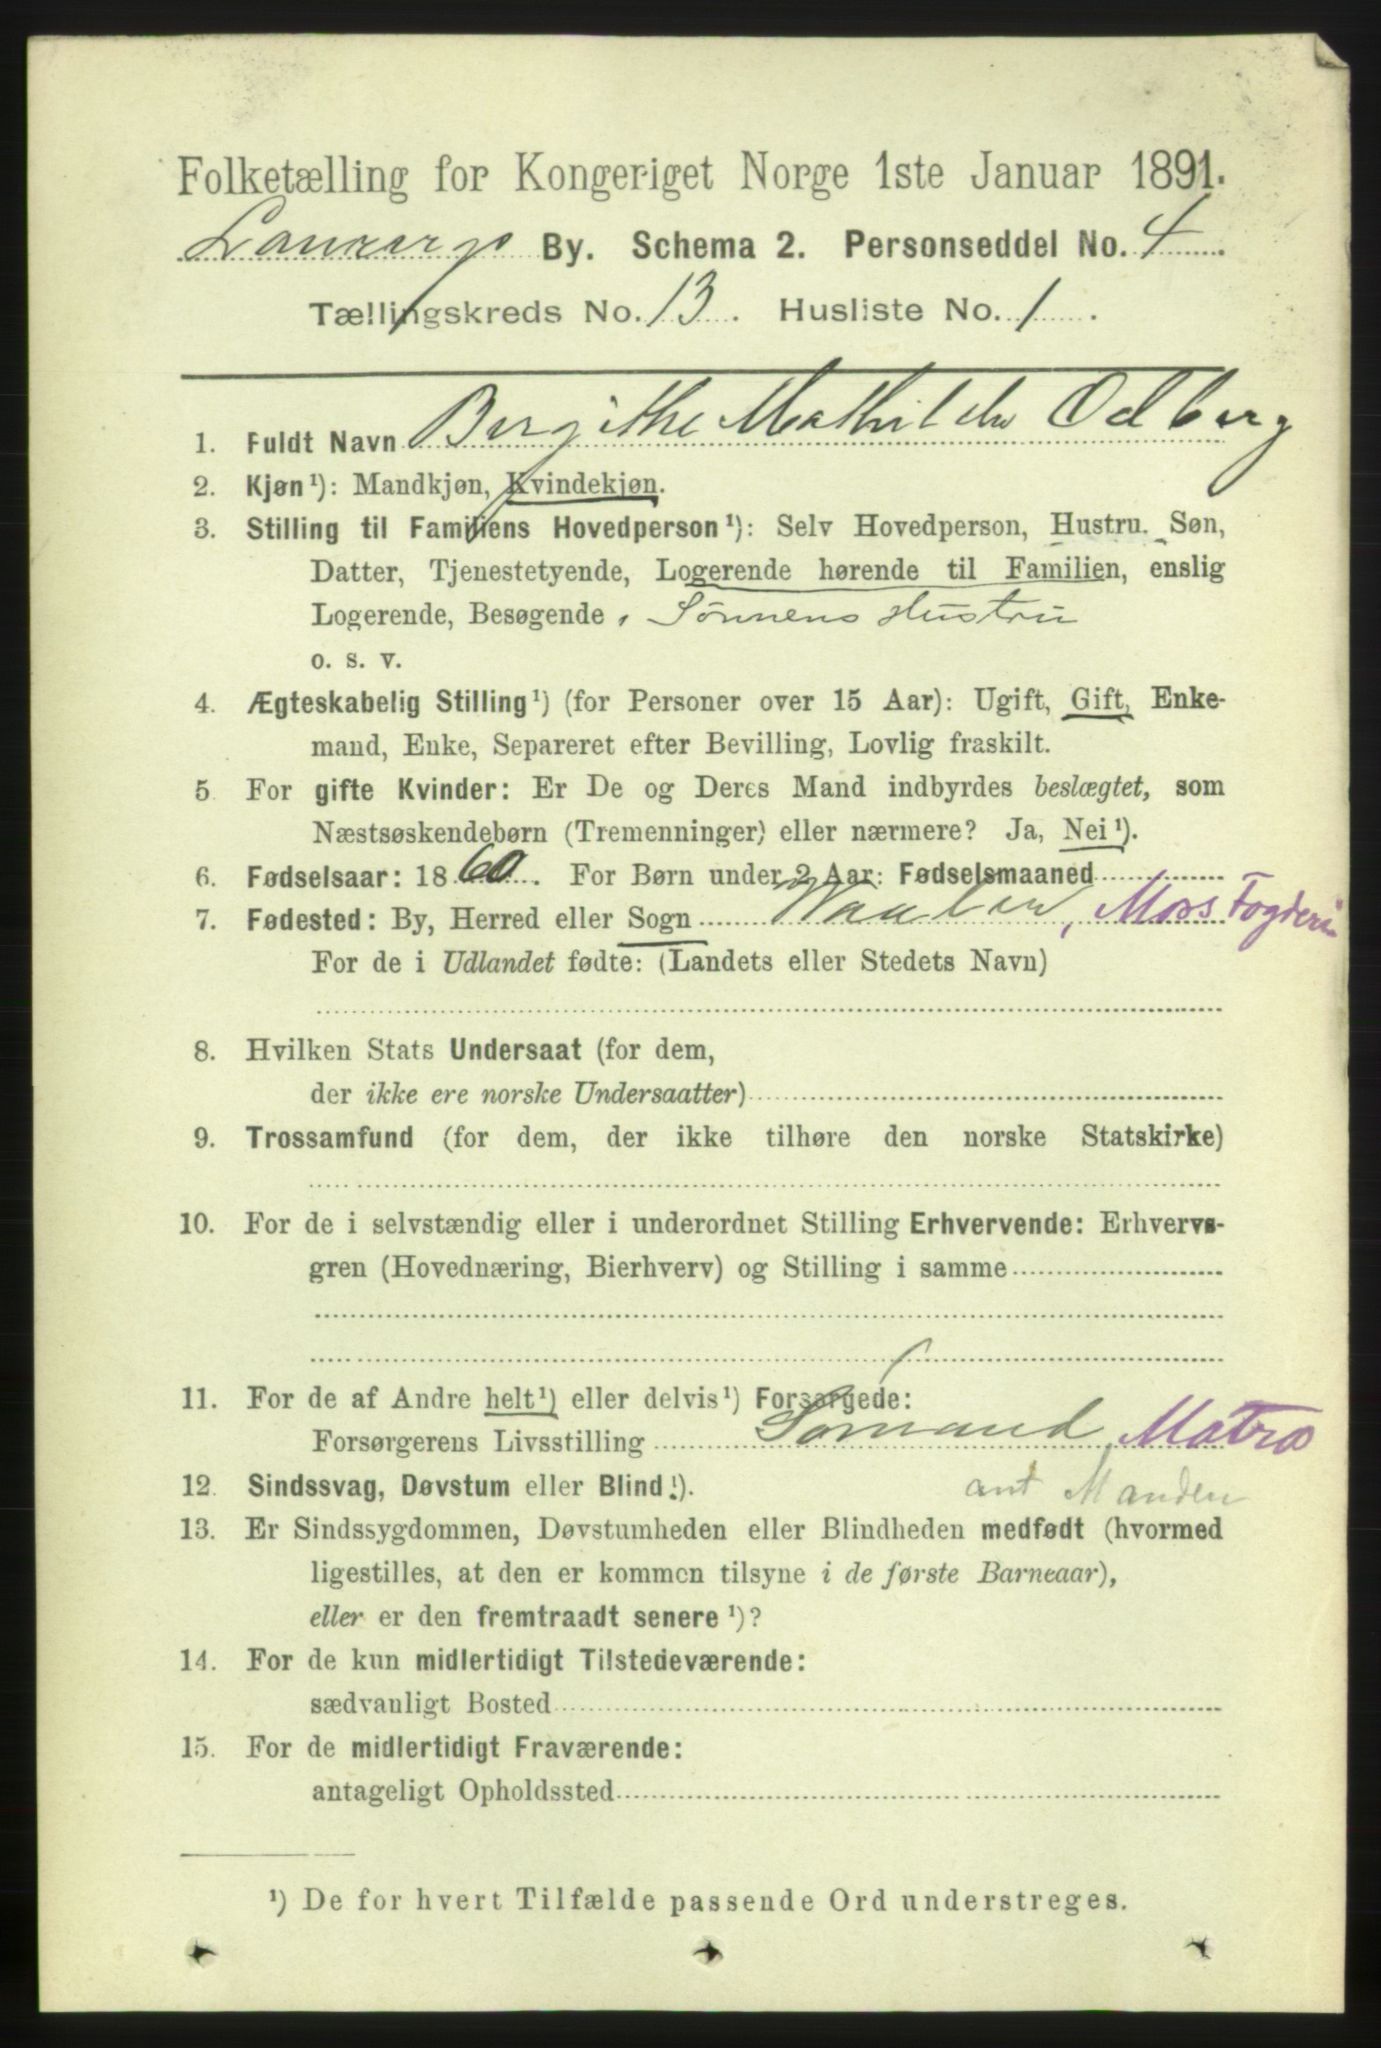 Folketælling for Kongeriget Norge 1ste Januar 1891.
By. Schema 2. Personseddel No. 4
Tællingskreds No. 13. Husliste No. 1.
1. Fuldt Navn Bergithe Mathilde Odberg
2. Kjøn¹): Mandkjøn, Kvindekjøn.
3. Stilling til Familiens Hovedperson¹): Selv Hovedperson, Hustru. Søn,
Datter, Tjenestetyende, Logerende hørende til Familien, enslig
Logerende, Besøgende, Sønnens Hustru
o. s. v.
4. Ægteskabelig Stilling¹) (for Personer over 15 Aar): Ugift, Gift, Enke-
mand, Enke, Separeret efter Bevilling, Lovlig fraskilt.
5 For gifte Kvinder: Er De og Deres Mand indbyrdes beslægtet, som
Næstsøskendebørn (Tremenninger) eller nærmere? Ja, Nei¹).
6. Fødselsaar: 1860. For Børn under 2 Aar: Fødselsmaaned
7. Fødested: By, Herred eller Sogn Vaaler, Moss Fogderi
For de i Udlandet fødte: (Landets eller Stedets Navn)
8. Hvilken Stats Undersaat (for dem,
der ikke ere norske Undersaatter)
9. Trossamfund (for dem, der ikke tilhøre den norske Statskirke)
10. For de i selvstændig eller i underordnet Stilling Erhvervende: Erhvervs-
gren (Hovednæring, Bierhverv) og Stilling i samme
11. For de af Andre helt¹) eller delvis¹) Forsørgede:
Forsørgerens Livsstilling Sømand, Matros
12. Sindssvag, Døvstum eller Blind¹). ant Manden
13. Er Sindssygdommen, Døvstumheden eller Blindheden medfødt (hvormed
ligestilles, at den er kommen tilsyne i de første Barneaar),
eller er den fremtraadt senere¹)?
14. For de kun midlertidigt Tilstedeværende:
sædvanligt Bosted
15. For de midlertidigt Fraværende:
antageligt Opholdssted
¹) De for hvert Tilfælde passende Ord understreges.